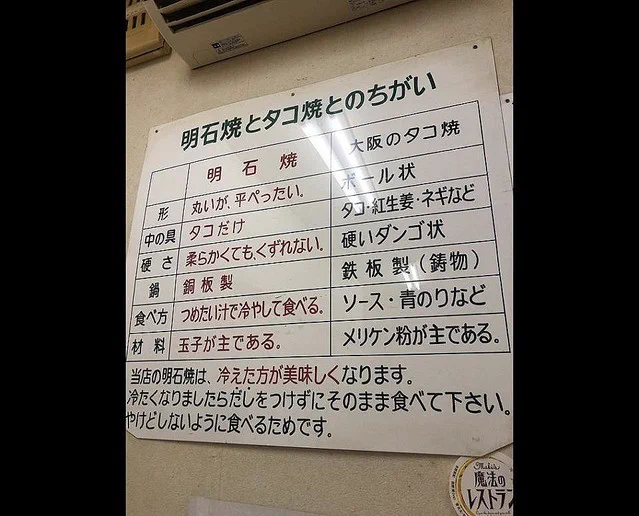 明石焼とタコ焼とのちがい
明石焼 大阪のタコ焼
形 丸いが、平ぺったい。 ボール状
中の具 タコだけ タコ・紅生姜・ネギなど
硬さ 柔らかくても、くずれない。 硬いダンゴ状
鍋 銅板製 鉄板製(鋳物)
食べ方 つめたい汁で冷やして食べる。 ソース・青のりなど
材料 玉子が主である。 メリケン粉が主である。
当店の明石焼は、冷えた方が美味しくなります。
冷たくなりましたらだしをつけずにそのまま食べて下さい。
やけどしないように食べるためです。
魔法の
レストラン